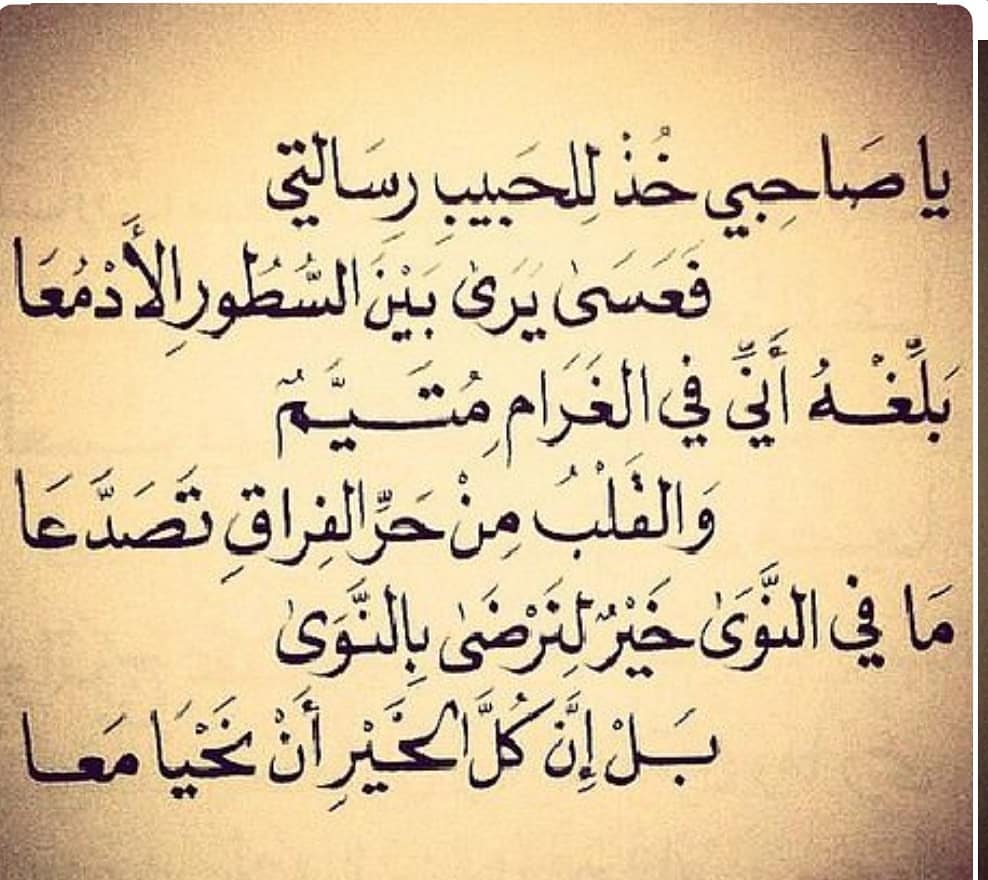 يا صَاحِبي خُذْ لِلحَبيبِ رِسَالتي
فَعَسَىٰ يَرىٰ بَيْنَ السُّطُورِ الأَدْمُعَا
بَلِّغْهُ أَنِّي في الغَرَامِ مُتَيَّمٌ
وَالقَلْبُ مِنْ حَرِّ الفِراقِ تَصَدَّعَا
مَا في النَّوَىٰ خَيْرٌ لِنَرْضَىٰ بِالنَّوَىٰ
بَلْ إِنَّ كُلَّ الخَيْرِ أَنْ نَحْيَا مَعا